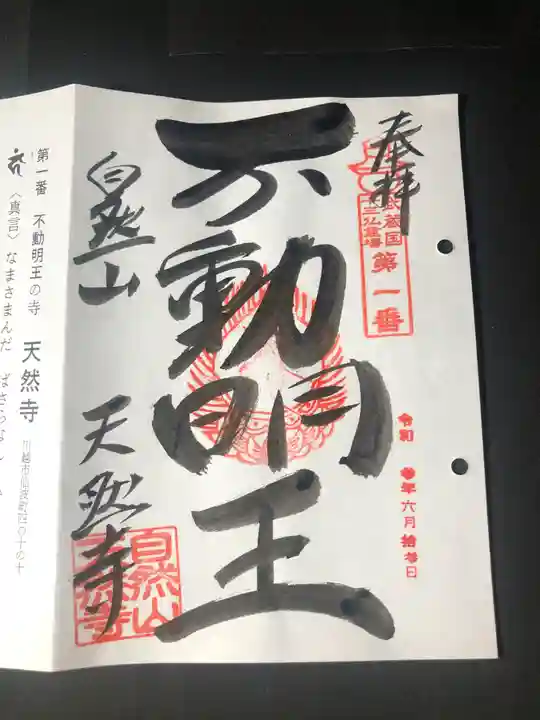 奉拝
武蔵国
十三仏霊場
第一番
令和 参年六月拾参日
不動明王
自然山 天然寺
自然山
天然寺
第一番 不動明王の寺 天然寺 川越市仙波町四の十の十
〈真言〉なまさまんだ ばさらなん